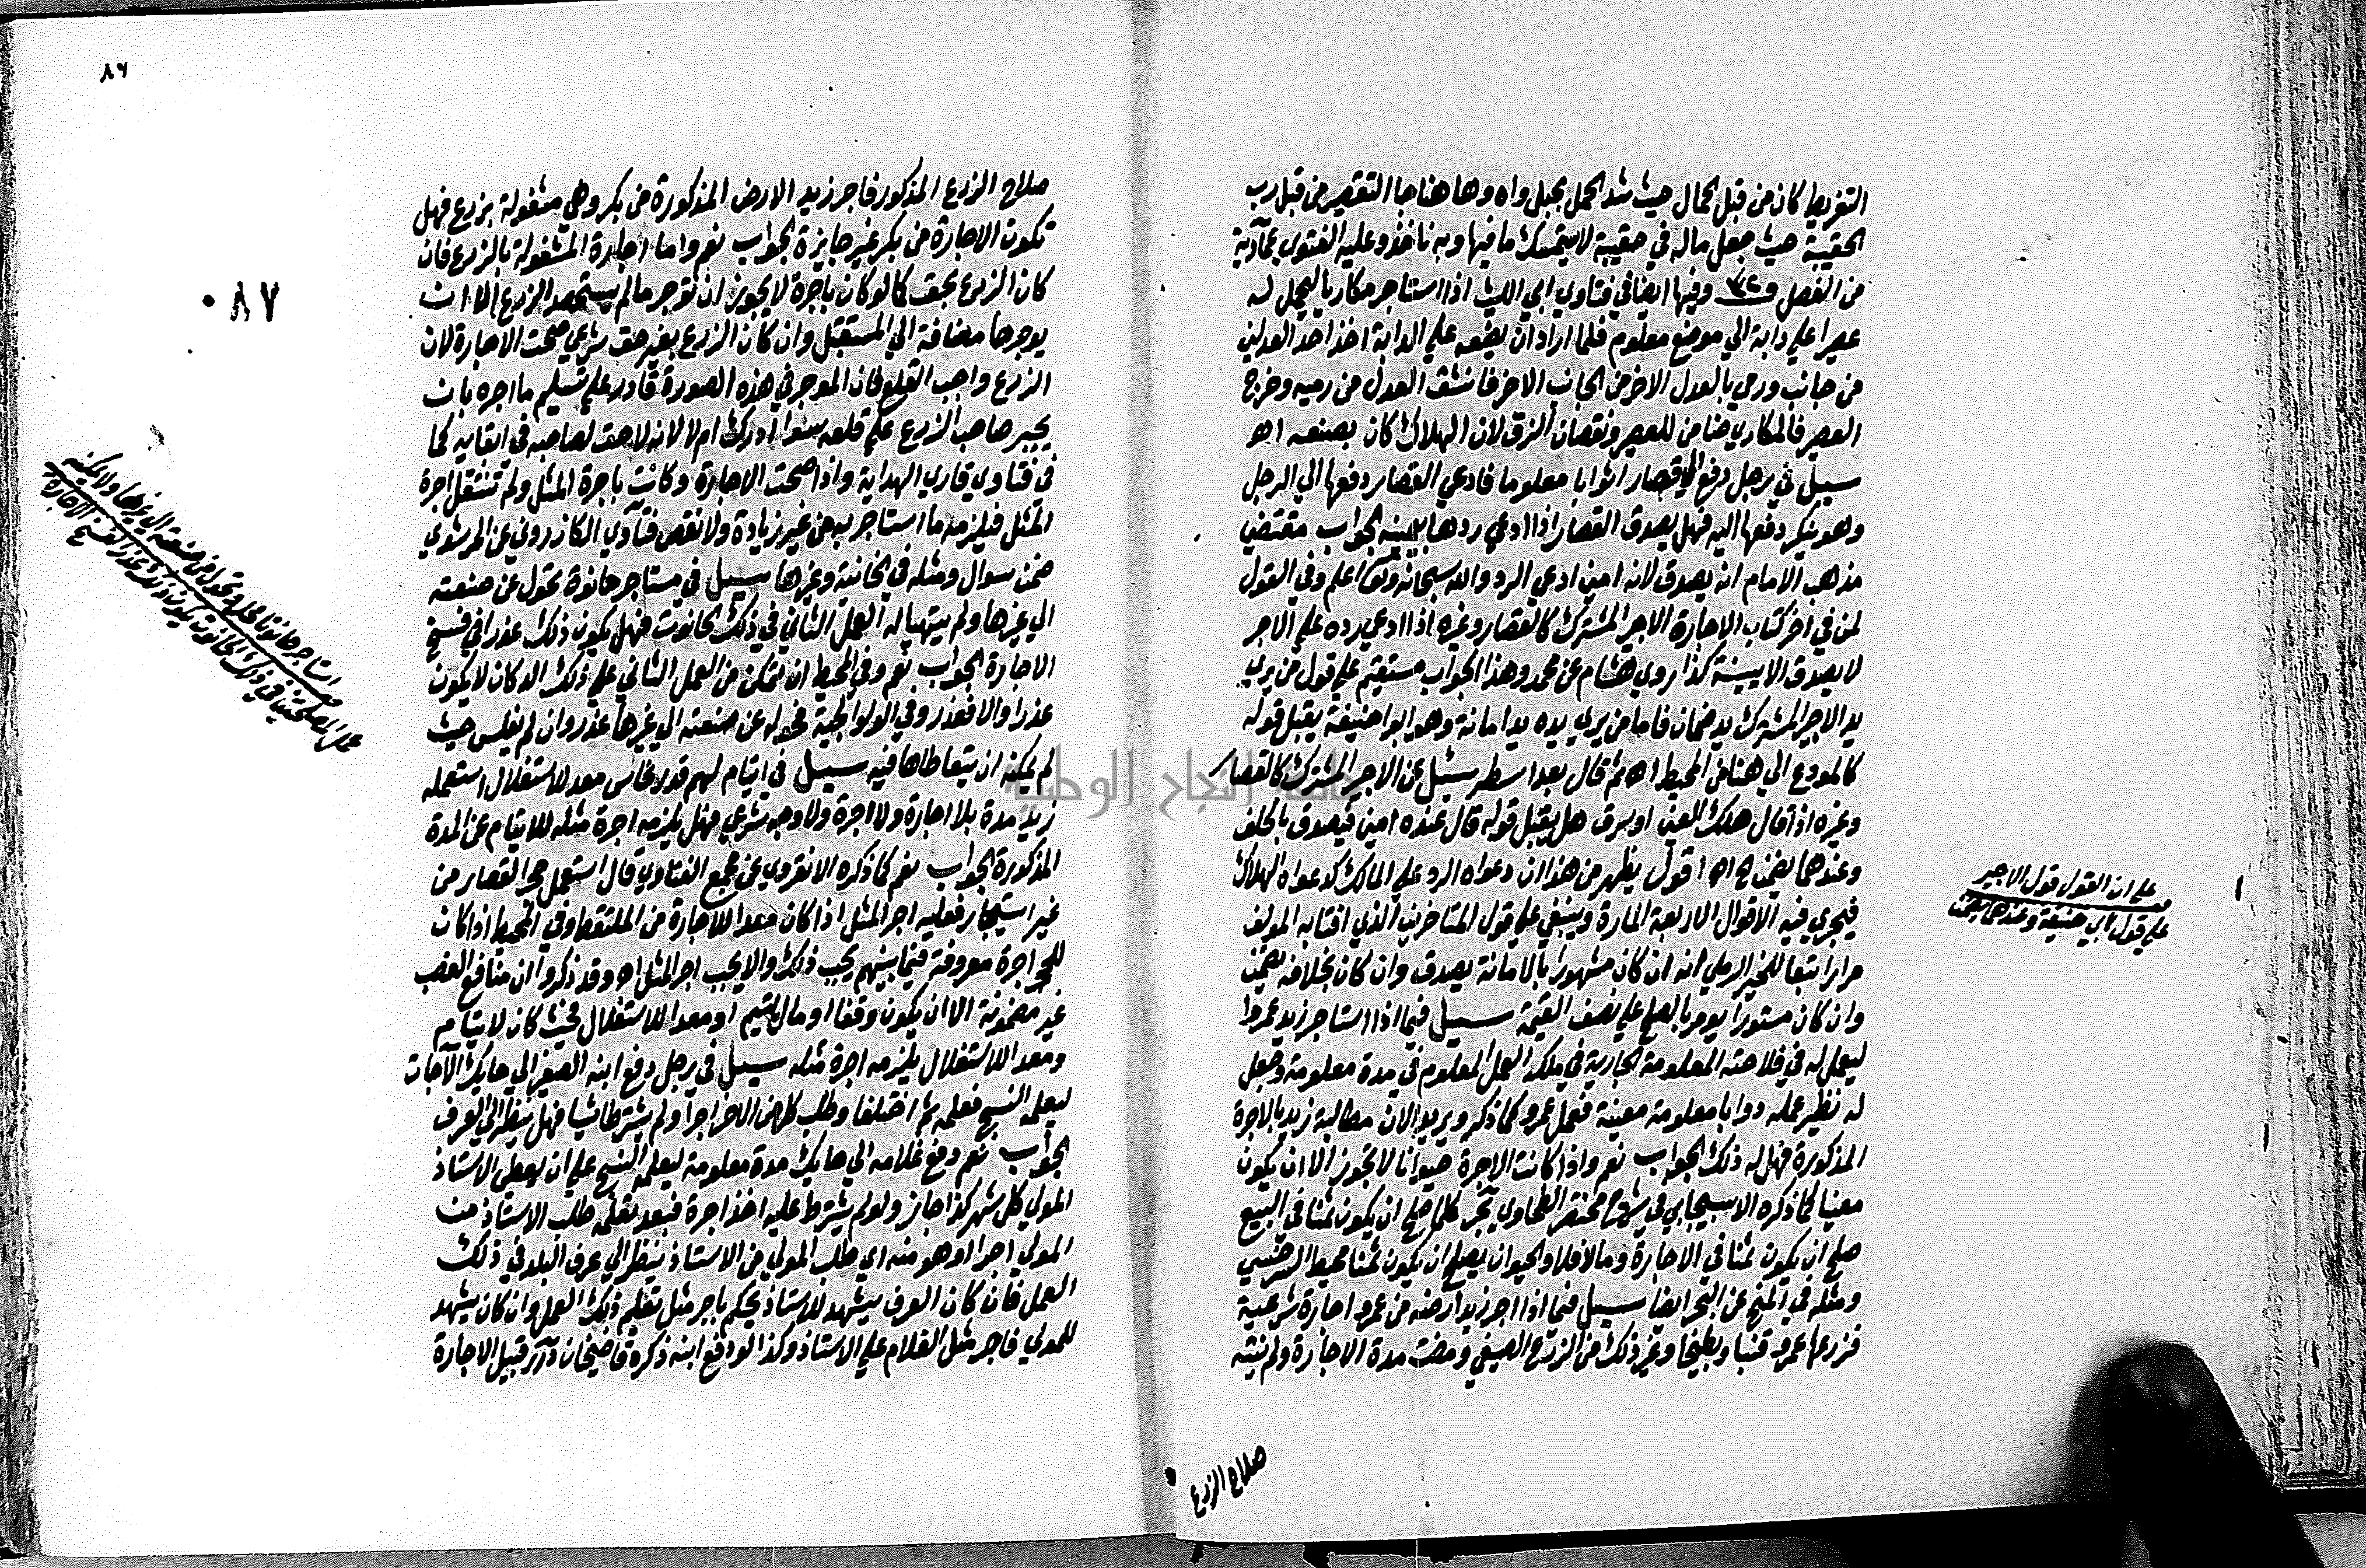 التفريط كان من قبل الحمال حيث شد الحمل بحبل واه وهاهنا جا التقصير من قبل رب
الحقيبة حيث جعل ماله في حقيبة لا تستمسك ما فيها وبه ناخذ وعليه الفتوى عمادية
من الفصل وفيها ايضا في فتاوي ابي الليث اذا استاجر مكاريا ليحمل له
عصيرا علي دابة الي موضع معلوم فلما اراد ان يضعه علي الدابة اخذ احد العدلين
من جانب ورمي بالعدل الاخر من الجانب الاخر فانشق العدل من رميه وخرج
العصير فالمكاري ضامن للعصير ونقصان الزق لان الهلاك كان بصنعه اهـ
سيل في رجل دفع الي قصار اثوابا معلوما فادعي القصار دفعها الي الرجل
وهو ينكر دفعها اليه فهل يصدق القصار اذا ادعي ردها بيمينه الجواب مقتضي
مذهب الامام انه يصدق لانه امين ادعي الرد والله سبحانه وتعالى اعلم وفي القول
لمن في اخر كتاب الاجارة الاجير المشترك كالقصار وغيره اذا ادعي رده علي الاجر
لا يصدق الا ببينة كذا روي هشام عن محمد وهذا الجواب مستقيم علي قول من يري
يد الاجير المشترك يد ضمان فاما من يري يده يد امانة وهو ابو حنيفة يقبل قوله
كالمودع الي هنا من المحيط اهـ ثم قال بعد اسطر سئيل عن الاجير المشترك كالقصار
وغيره اذ قال هلك العين او سرق هل يقبل قوله قال عنده امين فيصدق بالحلف
وعندهما يضمن اهـ اقول يظهر من هذا ان دعواه الرد علي المالك كدعواه الهلاك
فيجري فيه الاقوال الاربعة المارة وينبغي علي قول المتاخرين الذي افتي به المولف
مرارا تبعا للخير الرملي انه ان كان مشهورا بالامانة يصدق وان كان بخلافه يضمن
وان كان مستورا يومر بالصلح علي نصف القيمة سيل فيما اذا استاجر زيد عمروا
ليعمل له في فلاحته المعلومة الجارية في ملكه العمل المعلوم في مدة معلومة وجعل
له نظير عمله دوابا معلومة معينة فعمل عمرو كما ذكر ويريد الان مطالبة زيد بالاجرة
المذكورة فهل له ذلك الجواب نعم واذا كانت الاجرة حيوانا لا تجوز الا ان يكون
معينا كما ذكره الاسبيجابي في شرح مختصر الطحاوي بحر كلما صلح ان يكون ثمنا في البيع
صلح ان يكون ثمنا في الاجارة وما لا فلا والحيوان يصلح ان يكون ثمنا محيط السرخسي
ومثله في المنح عن البحر ايضا سيل فيما اذا اجر زيد ارضه من عمرو اجارة شرعية
فزرعها عمرو قنبا وبطيخا وغير ذلك من الزرع الصيفي ومضت مدة الاجارة ولم ينته
صلاح الزرع
علي ان القول قول الاجير
علي قول ابي حنيفة وعندهما يضمن
٨٦
٨٧
صلاح الزرع المذكور فاجر زيد الارض المذكورة من بكر وهي مشغولة بزرع فهل
تكون الاجارة من بكر غير جايزة الجواب نعم واما اجارة المشغولة بالزرع فان
كان الزرع بحق كما لو كان باجرة لا يجوز ان توجر ما لم يستحصد الزرع الا ان
يوجرها مضافة الي المستقبل وان كان الزرع بغير حق شرعي صحت الاجارة لان
الزرع واجب القلع فان الموجر في هذه الصورة قادر علي تسليم ما اجره بان
يجبر صاحب الزرع علي قلعه سوا ادرك ام لا لانه لا حق لصاحبه في ابقايه كما
في فتاوي قاري الهداية واذا صحت الاجارة وكانت باجرة المثل ولم تنتقل اجرة
المثل فيلزمه ما استاجر به من غير زيادة ولا نقص فتاوي الكازروني عن المرشدي
ضمن سوال ومثله في الخانية وغيرها سيل في مستاجر حانوة تحول عن صنعته
الي غيرها ولم يتهيا له العمل الثاني في ذلك الحانوت فهل يكون ذلك عذرا في فسخ
الاجارة الجواب نعم وفي المحيط ان تمكن من العمل الثاني علي ذلك الدكان لا يكون
عذرا والا فعذر وفي الولوالجية تحوله عن صنعته الي غيرها عذر وان لم يفلس حيث
لم يمكنه ان يتعاطاها فيه سيل في ايتام لهم قدر نحاس معد للاستغلال استعمله
زيد مدة بلا اجارة ولا اجرة ولا وجه شرعي فهل يلزمه اجرة مثله للايتام عن المدة
المذكورة الجواب نعم كما ذكره الانقروي عن مجمع الفتاوي قال استعمل حجر القصار من
غير استيجار فعليه اجر المثل اذا كان معدا للاجارة من الملتقط وفي المحيط اذا كان
للحجر اجرة معروفة فيما بينهم يجب ذلك والا يجب اجر المثل اهـ وقد ذكروا ان منافع الغصب
غير مضمونة الا ان يكون وقفا او مال يتيم او معدا للاستغلال فحيث كان لايتام
ومعدا للاستغلال يلزمه اجرة مثله سيل في رجل دفع ابنه الصغير الي حايك الآجات
ليعلمه النسج فعلمه ثم اختلفا وطلب كل من الاخر اجرا ولم يشترطا شيا فهل ينظر الي العرف
الجواب نعم دفع غلامه الي حايك مدة معلومة ليعلمه النسج علي ان يعطي الاستاذ
المولي كل شهر كذا جاز ولو لم يشترط عليه اخذ اجرة فبعد تعلمه طلب الاستاذ من
المولي اجرا وهو منه اي طلب المولي من الاستاذ ينظر الي عرف البلد في ذلك
العمل فان كان العرف يشهد للاستاذ يحكم باجر مثل تعليم ذلك العمل وان كان يشهد
للمولي فاجر مثل الغلام علي الاستاذ وكذا لو دفع ابنه ذكره قاضيخان درر قبيل الاجارة
استاجر حانوتا تحول من صنعته الي غيرها ولا يمكنه